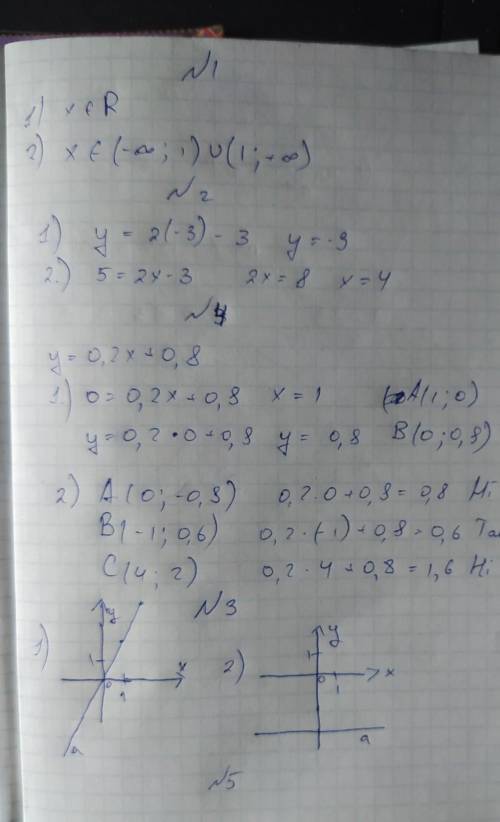 №1
1) x ∈ R
2) x ∈ (-∞; 1) ∪ (1; +∞)
№2
1.) y = 2(-3) - 3 y = -9
2.) 5 = 2x - 3 2x = 8 x = 4
№4
y = 0,2x + 0,8
1.) 0 = 0,2x + 0,8 x = 1 A(1; 0)
y = 0,2 • 0 + 0,8 y = 0,8 B(0; 0,8)
2) A(0; -0,8) 0,2 · 0 + 0,8 = 0,8 Ні
B(-1; 0,6) 0,2 · (-1) + 0,8 = 0,6 Так
C(4; 2) 0,2 · 4 + 0,8 = 1,6 Ні
№3
1) y 1 x 0 1 a
2) y 1 x 0 1 a
№5